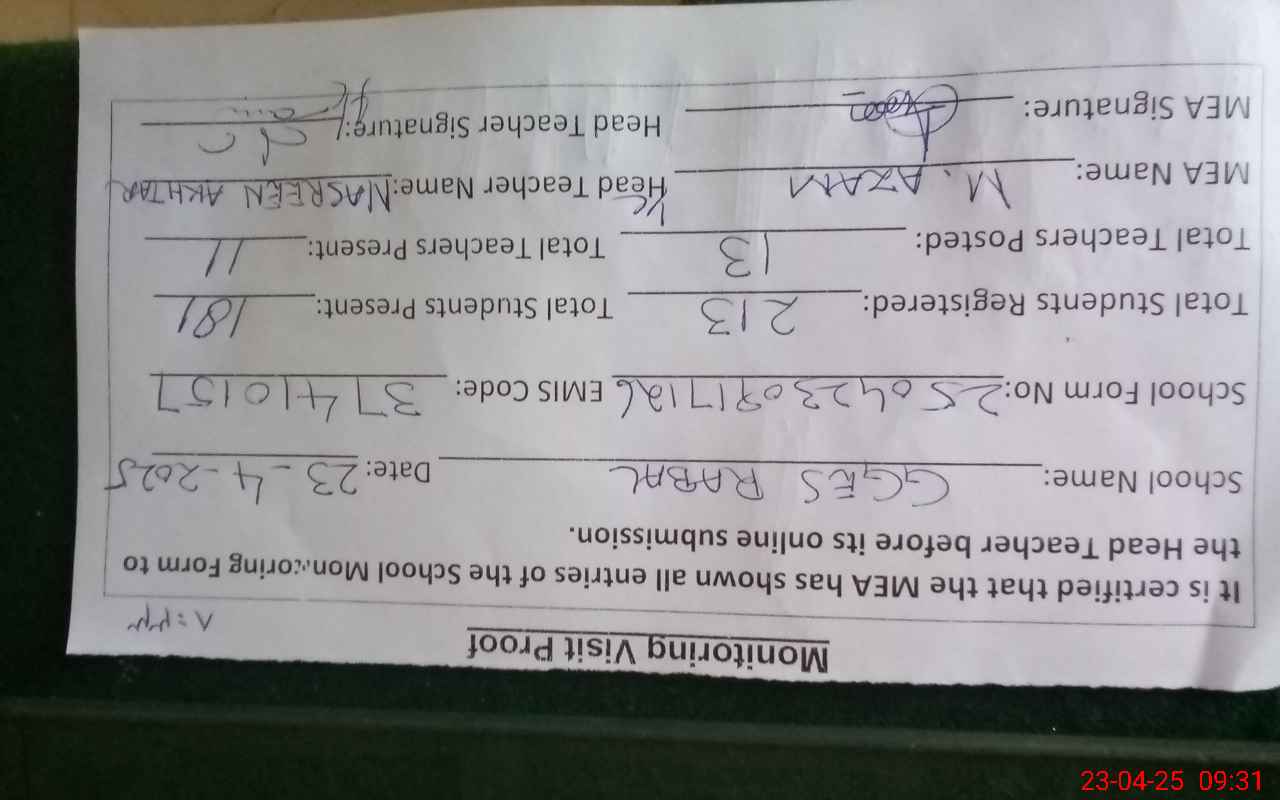 Monitoring Visit Proof
It is certified that the MEA has shown all entries of the School Monitoring Form to
the Head Teacher before its online submission.
School Name: GGES RABAL Date: 23-4-2025
School Form No: 2504230917126 EMIS Code: 37410157
Total Students Registered: 213 Total Students Present: 181
Total Teachers Posted: 13 Total Teachers Present: 11
MEA Name: M. AZAM Head Teacher Name: NASREEN AKHTAR
MEA Signature: Head Teacher Signature:
23-04-25 09:31